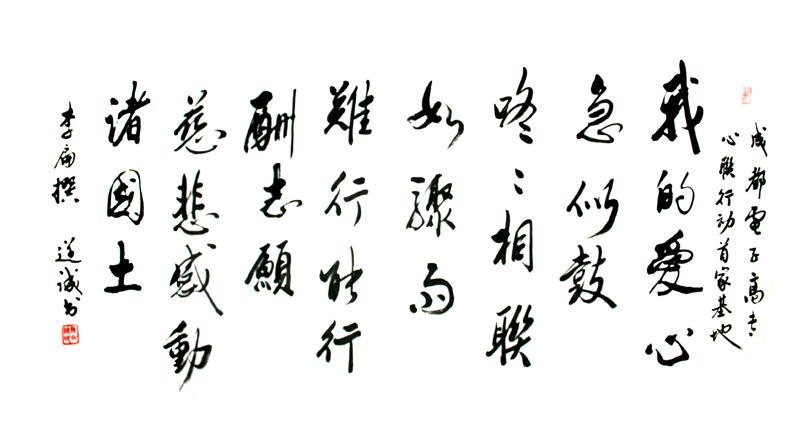 成都電子高专
心聯行动首家基地
我的愛心
急似鼓
咚〻相聯
如驟雨
難行能行
酬志願
慈悲感動
諸國土
李扁撰 道诚书